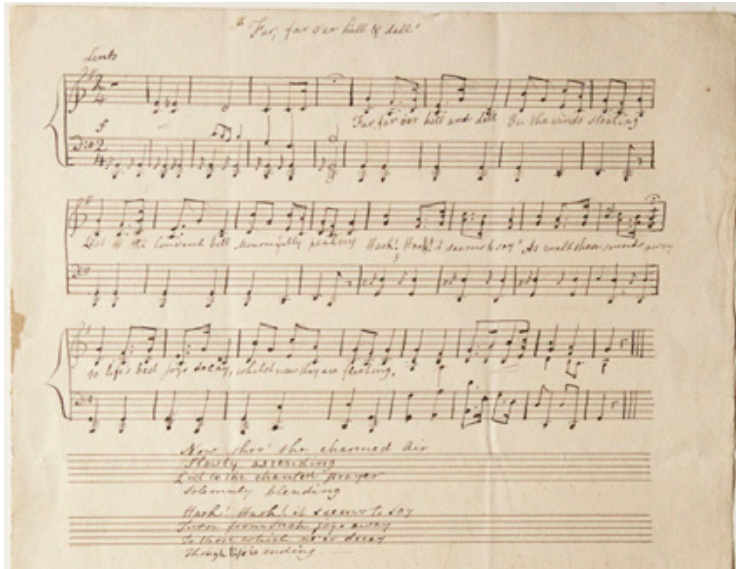 "Far, far o'er hill & dell"
Lento
2 4
f
Far, far o'er hill and dell On the winds stealing
2 4
List to the Convent bell Mournfully pealing Hark! Hark! it seems to say "As melt these sounds away
So life's best joys decay, whilst new they are fleeting,
Now thro' the charmed air
Slowly ascending
List to the chanted prayer
Solemnly blending
Hark! Hark! it seems to say
Turn from such joys away
To those which ne'er decay
Though life is ending